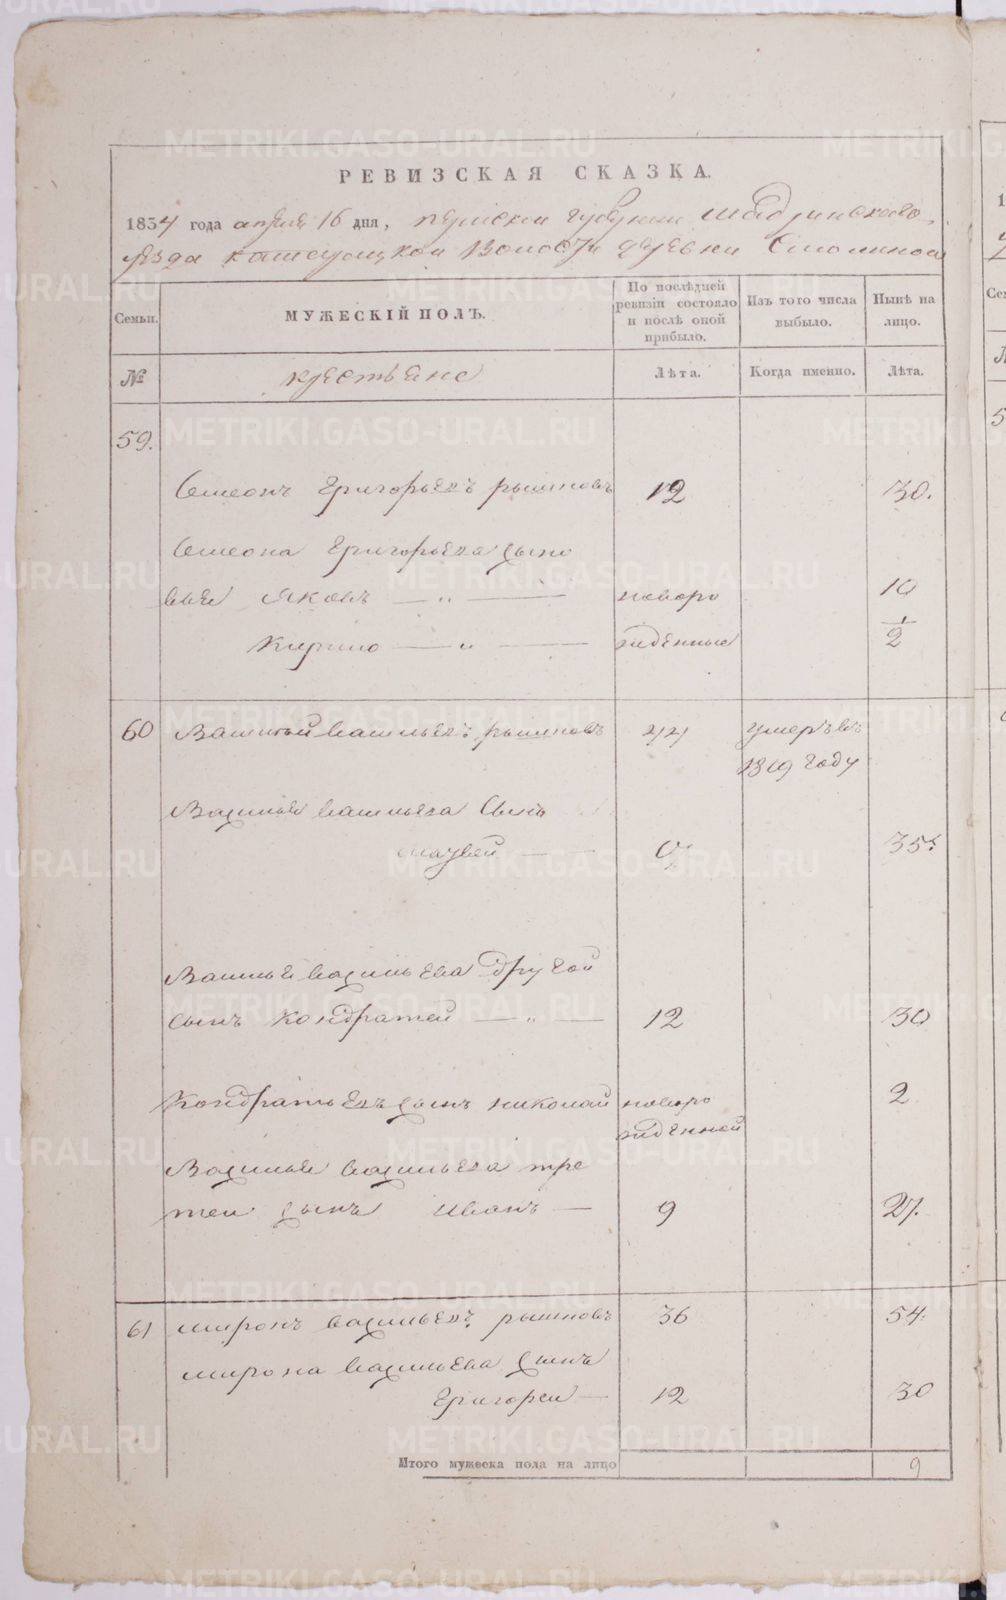 РЕВИЗСКАЯ СКАЗКА.
1834 года апреля 16 дня, пермской губернии шадринского
уезда волости деревни
Семьи. МУЖЕСКІЙ ПОЛЪ. По послѣдней ревизіи состояло и послѣ оной прибыло. Изъ того числа выбыло. Нынѣ на лицо.
№ крестьяне Лѣта. Когда именно. Лѣта.
59.
Семеонъ Григорьевъ 12 30.
Семеона Григорьева сыно
вья Яковъ — „ — новоро 10
Кирило — „ — жденные 1/2
60 Василей васильевъ 44 умеръ въ
1819 году
Василья васильева сынъ
матвей — — 35.
Василья васильева другой
сынъ Кондратей — „ — 12 30
Кондратьевъ сынъ николай новоро 2
жденной
Василья васильева тре
тей сынъ иванъ — 9 27.
61 миронъ васильевъ 36 54.
мирона васильева сынъ
Григорей — 12 30
Итого мужеска пола на лицо 9
METRIKI.GASO-URAL.RU